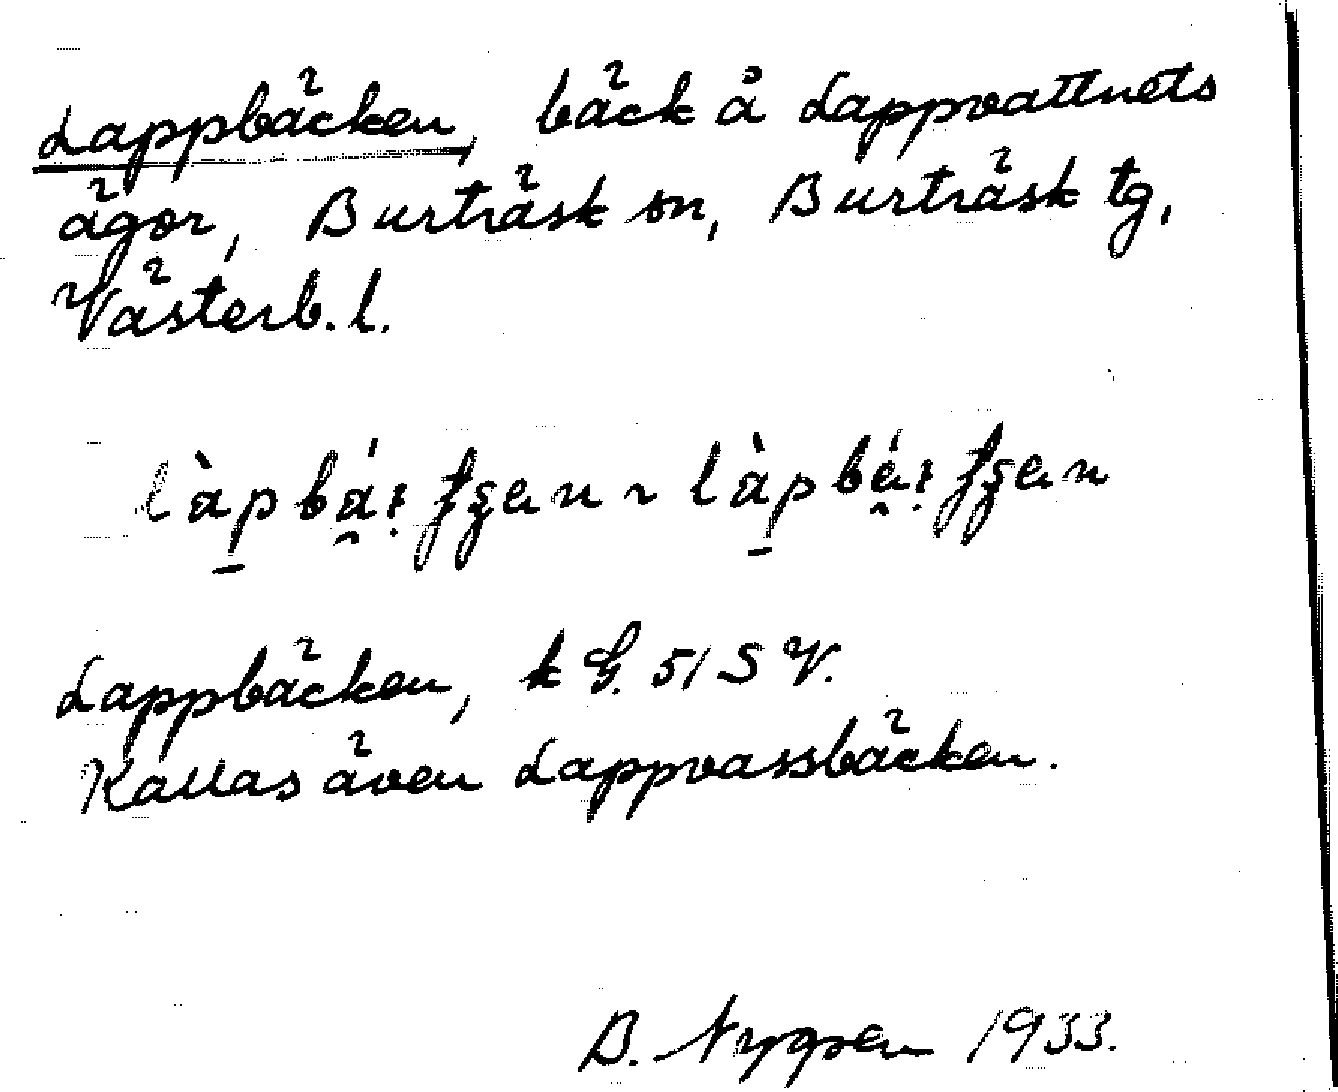 Lappbäcken, bäck å Lappvattnets
ägor, Burträsk sn, Burträsk tg,
Västerb. l.
Lappbäcken, k G. 51 S V.
Kallas även Lappvassbäcken.
B. Nygren 1933.